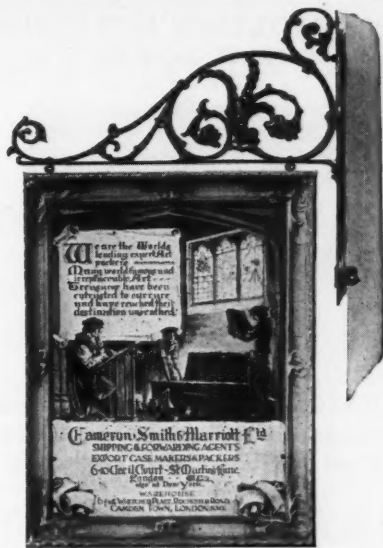 We are the Worlds
leading expert Art
packers
Many world famous and
irreplaceable Art
Treasures have been
entrusted to our care
and have reached their
destination unscathed.
Cameron·Smith & Marriott Ltd
SHIPPING & FORWARDING AGENTS
EXPORT CASE MAKERS & PACKERS
6-10 Cecil Court - St Martins Lane,
London W.C.2.
also at New York.
WAREHOUSE
PLACE, ROCHESTER ROAD
CAMDEN TOWN, LONDON N.W.1